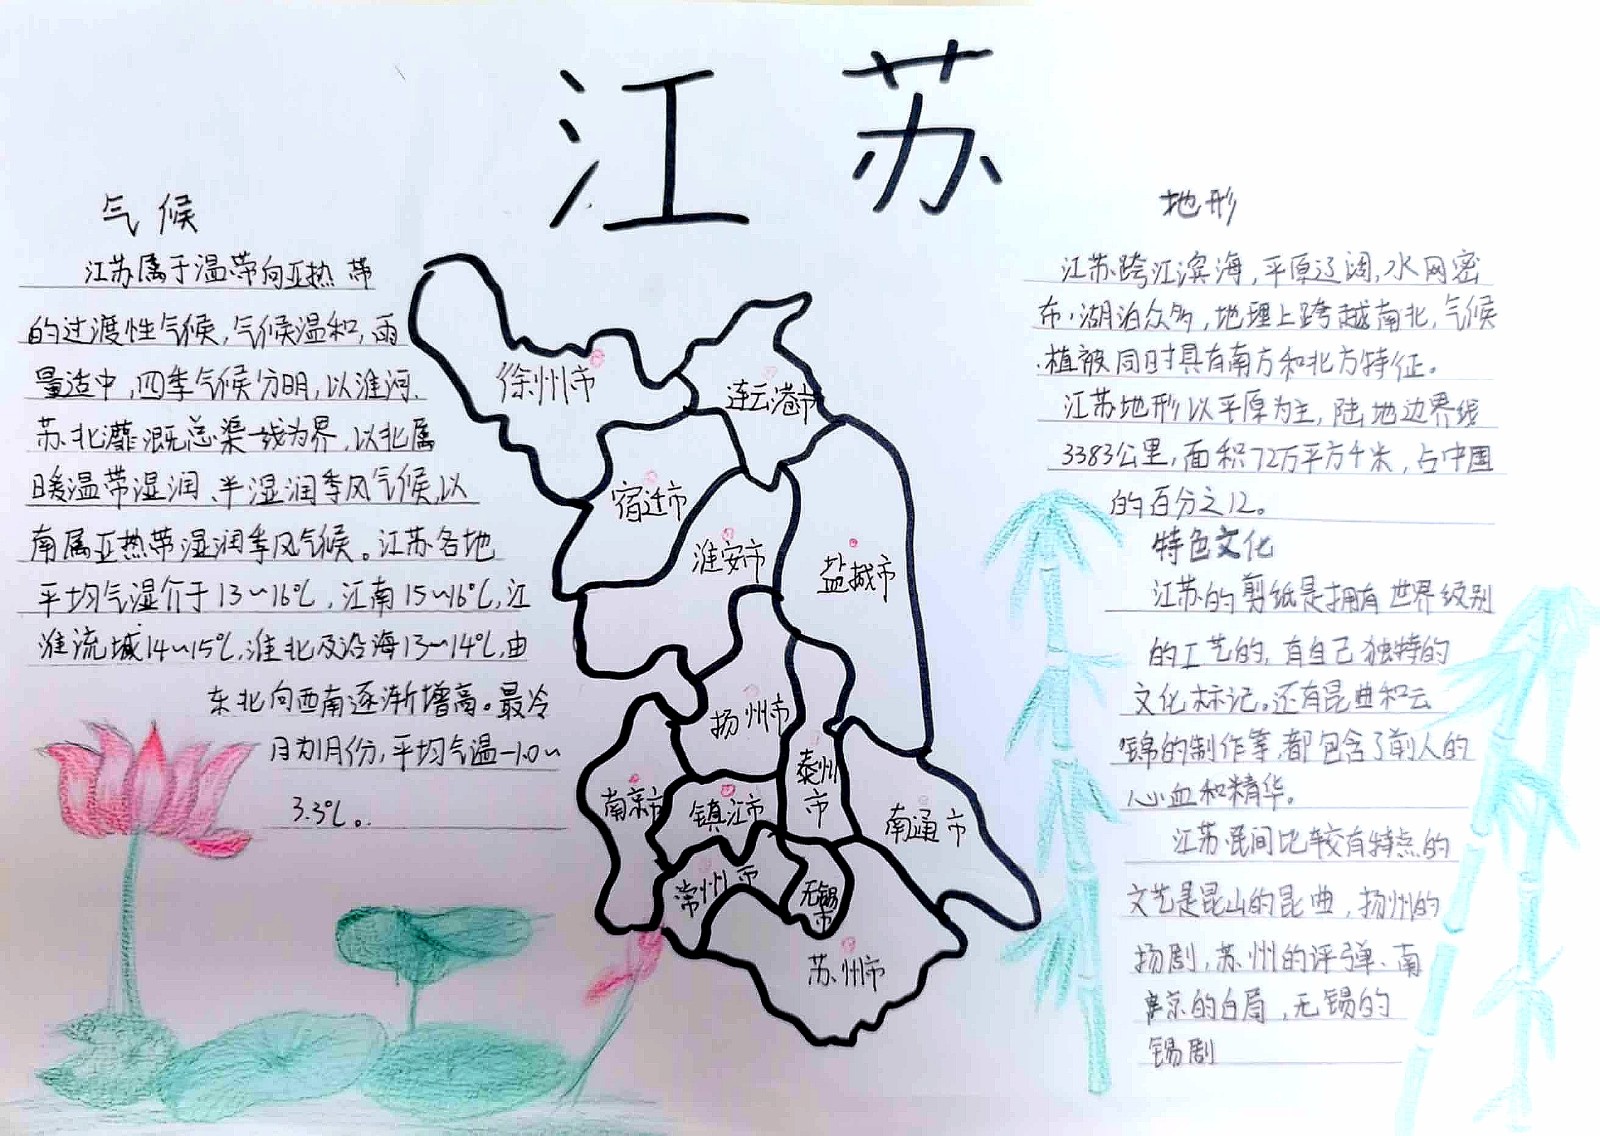 江苏
气候
江苏属于温带向亚热带
的过渡性气候,气候温和,雨
量适中,四季气候分明,以淮河、
苏北灌溉总渠一线为界,以北属
暖温带湿润、半湿润季风气候,以
南属亚热带湿润季风气候。江苏各地
平均气湿介于13~16℃,江南15~16℃,江
淮流域14~15℃,淮北及沿海13~14℃,由
东北向西南逐渐增高。最冷
月为1月份,平均气温-1.0~
3.3℃。
徐州市
连云港市
宿迁市
淮安市
盐城市
扬州市
泰州
市
南京市
镇江市
南通市
常州市
无锡
市
苏州市
地形
江苏跨江滨海,平原辽阔,水网密
布,湖泊众多,地理上跨越南北,气候
、植被同时具有南方和北方特征。
江苏地形以平原为主,陆地边界线
3383公里,面积72万平方千米,占中国
的百分之12。
特色文化
江苏的剪纸是拥有世界级别
的工艺的,有自己独特的
文化标记。还有昆曲和云
锦的制作等,都包含了前人的
心血和精华。
江苏民间比较有特点的
文艺是昆山的昆曲,扬州的
扬剧,苏州的评弹、南
京的白局,无锡的
锡剧